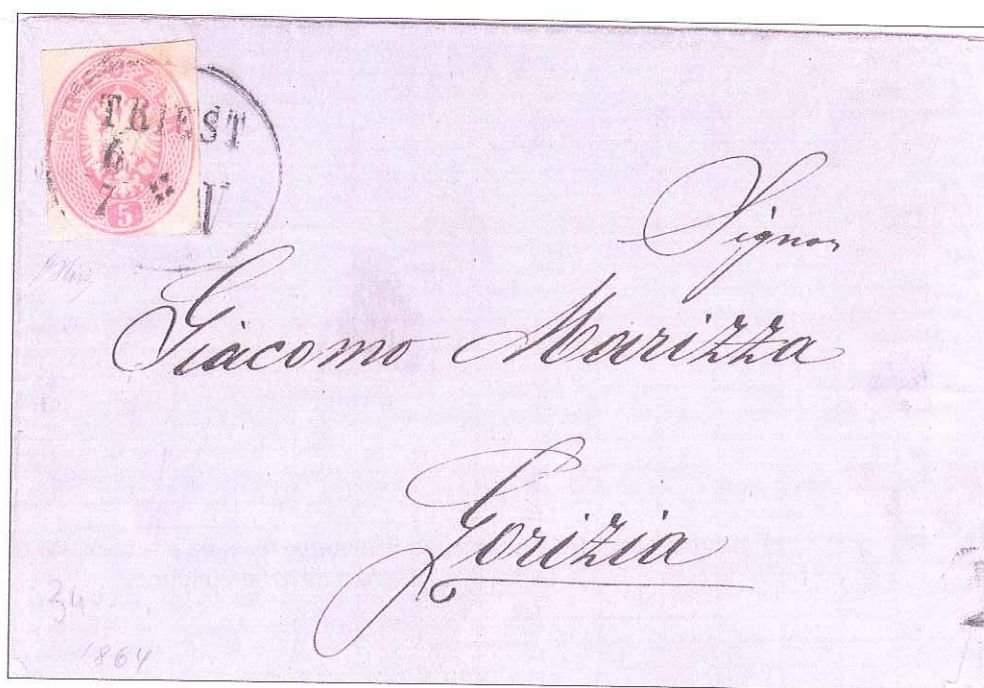 TRIEST
6
7 V
5
Signor
Giacomo Marizza
Gorizia
34
1864